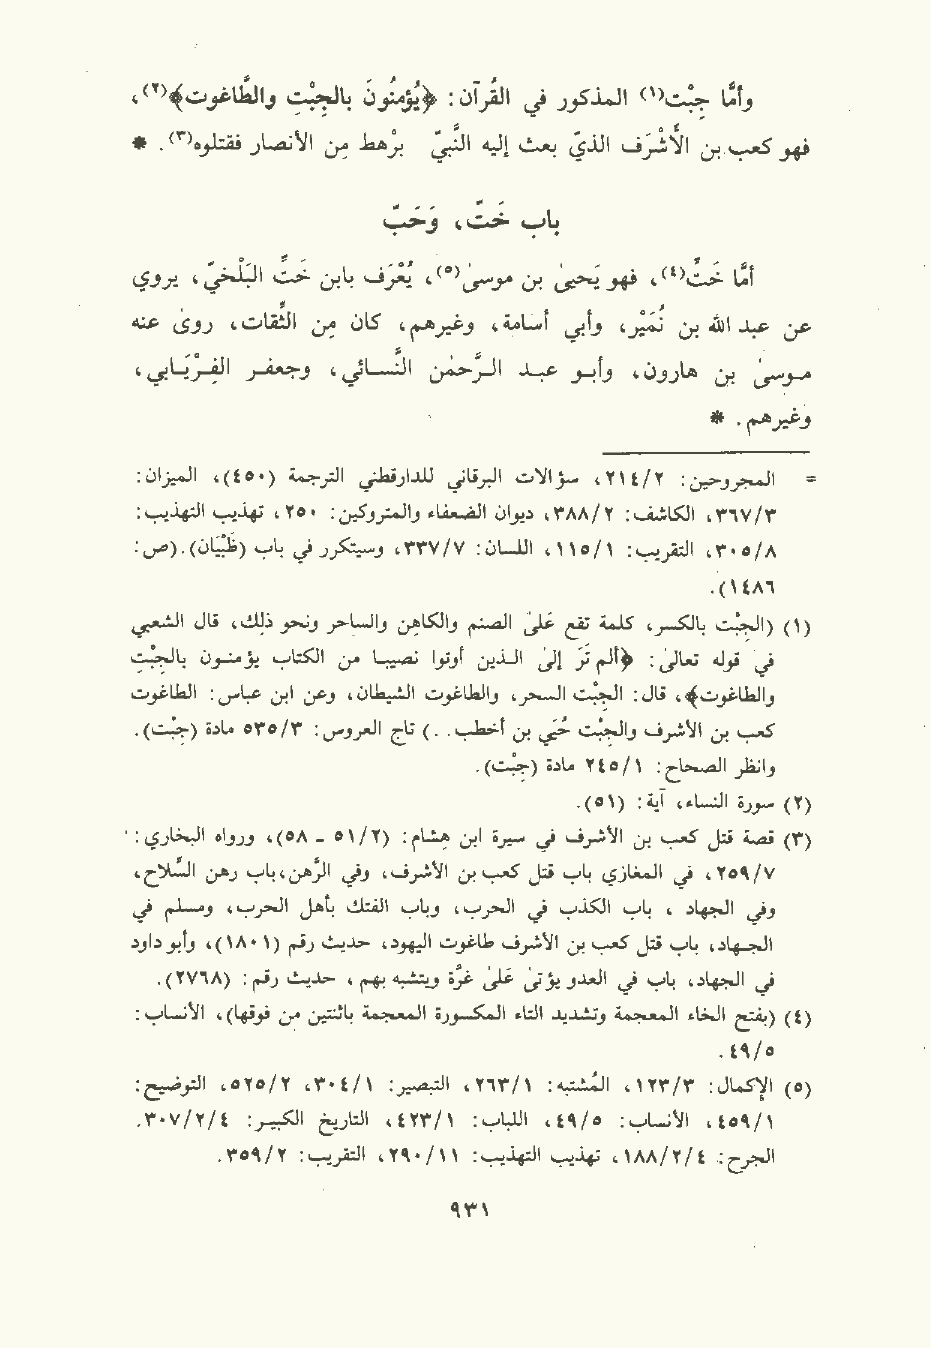 وأمَّا جِبْت(١) المذكور في القُرآن : ﴿يُؤمنُونَ بالجِبْتِ والطَّاغوت﴾(٢)،
فهو كعب بن الأَشْرَف الذيْ بعث إليه النَّبيّ برْهط مِن الأنصار فقتلوه(٣). *
باب خَتّ، وَحَبّ
أمَّا خَتّ(٤)، فهو يَحيىٰ بن موسىٰ(٥)، يُعْرَف بابن خَتِّ البَلْخيّ، يروي
عن عبد الله بن نُمَيْر، وأبي أسامة، وغيرهم، كان مِن الثِّقات، روىٰ عنه
موسىٰ بن هارون، وأبو عبد الرَّحمٰن النَّسائي، وجعفر الفِرْيَابي،
وغيرهم. *
= المجروحين: ٢١٤/٢، سؤالات البرقاني للدارقطني الترجمة (٤٥٠)، الميزان:
٣٦٧/٣، الكاشف: ٣٨٨/٢، ديوان الضعفاء والمتروكين: ٢٥٠، تهذيب التهذيب:
٣٠٥/٨، التقريب: ١١٥/١، اللسان: ٣٣٧/٧، وسيتكرر في باب (ظَبْيَان).(ص:
١٤٨٦).
(١) (الجِبْت بالكسر، كلمة تقع علىٰ الصنم والكاهِن والساحر ونحو ذٰلِك، قال الشعبي
في قوله تعالىٰ: ﴿ألم تَرَ إلىٰ الذين أوتوا نصيبا من الكتاب يؤمنون بالجِبْتِ
والطاغوت﴾، قال: الجِبْت السحر، والطاغوت الشيطان، وعن ابن عباس: الطاغوت
كعب بن الأشرف والجِبْت حُيَي بن أخطب. .) تاج العروس: ٥٣٥/٣ مادة (جِبْت).
وانظر الصحاح: ٢٤٥/١ مادة (جِبْت).
(٢) سورة النساء، آية: (٥١).
(٣) قصة قتل كعب بن الأشرف في سيرة ابن هِشام: (٥١/٢ - ٥٨)، ورواه البخاري:
٢٥٩/٧، في المغازي باب قتل كعب بن الأشرف، وفي الرَّهن، باب رهن السِّلاح،
وفي الجهاد ، باب الكذب في الحرب، وباب الفتك بأهل الحرب، ومسلم في
الجهاد، باب قتل كعب بن الأشرف طاغوت اليهود، حديث رقم (١٨٠١)، وأبو داود
في الجهاد، باب في العدو يؤتىٰ علىٰ غرَّة ويتشبه بهم ، حديث رقم: (٢٧٦٨).
(٤) (بفتح الخاء المعجمة وتشديد التاء المكسورة المعجمة باثنتين من فوقها)، الأنساب:
٤٩/٥ .
(٥) الإكمال: ١٢٣/٣، المُشتبه: ٢٦٣/١، التبصير: ٣٠٤/١، ٥٢٥/٢، التوضيح:
٤٥٩/١، الأنساب: ٤٩/٥، اللباب: ٤٢٣/١، التاريخ الكبير: ٣٠٧/٢/٤.
الجرح: ١٨٨/٢/٤، تهذيب التهذيب: ٢٩٠/١١، التقريب: ٣٥٩/٢.
٩٣١